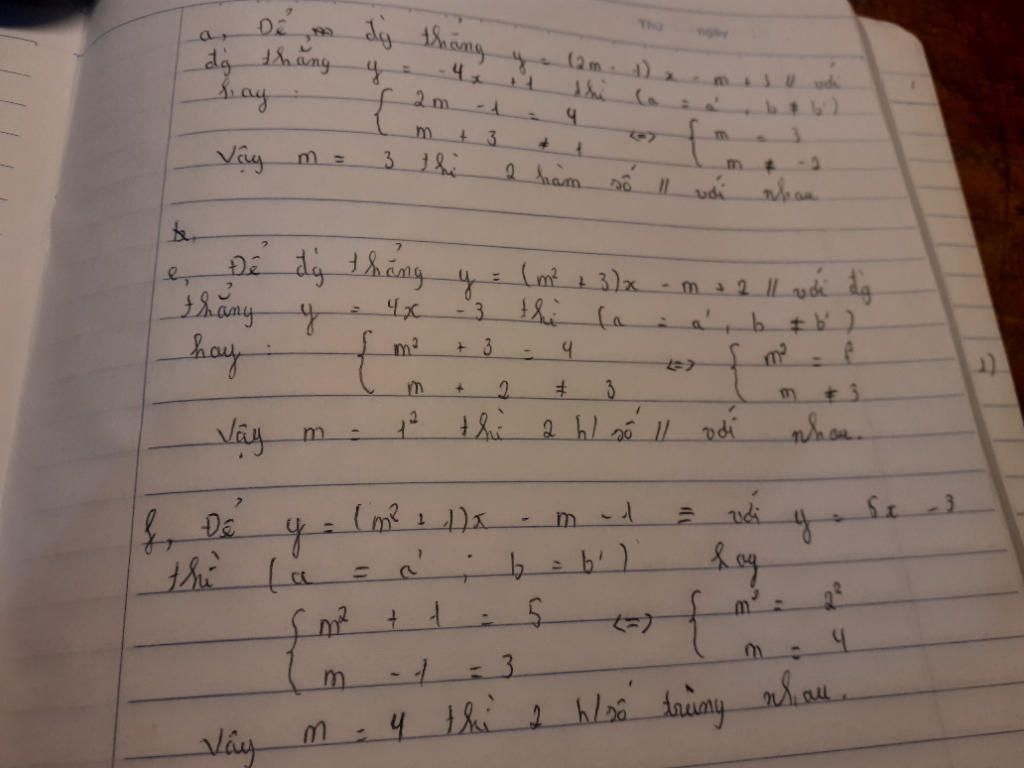 Thứ ngày
a, Để đg thẳng y = (2m - 1)x - m + 3 // với
đg thẳng y = -4x + 1 thì (a = a', b ≠ b')
hay : { 2m - 1 = 4 <=> { m = 3
m + 3 ≠ 1 m ≠ -2
Vậy m = 3 thì 2 hàm số // với nhau
e, Để đg thẳng y = (m² + 3)x - m + 2 // với đg
thẳng y = 4x - 3 thì (a = a', b ≠ b')
hay : { m² + 3 = 4 <=> { m² =
m + 2 ≠ 3 m ≠ 3
1)
Vậy m = 1² thì 2 h/số // với nhau.
f, Để y = (m² + 1)x - m - 1 ≡ với y = 5x - 3
thì (a = a' ; b = b') hay
{ m² + 1 = 5 <=> { m² = 2²
m - 1 = 3 m = 4
Vậy m = 4 thì 2 h/số trùng nhau.